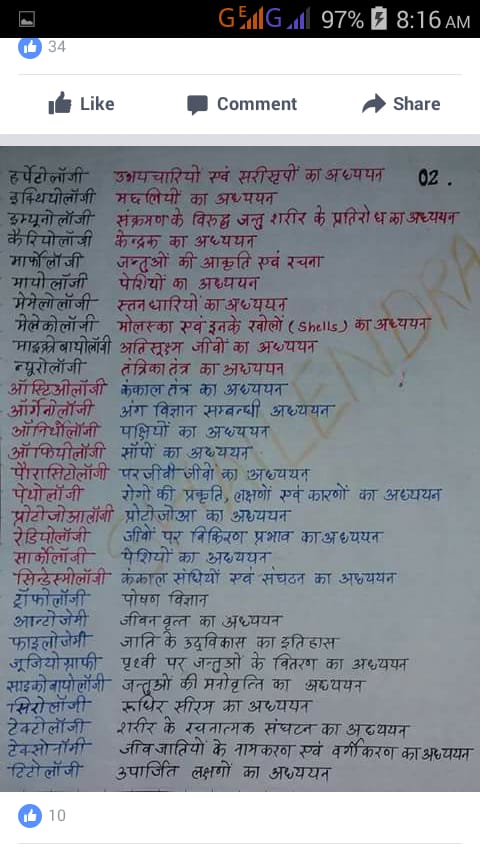 GE G 97% 8:16 AM
34
Like Comment Share
02.
हर्पेटोलॉजी उभयचारियो एवं सरीसृपों का अध्ययन
इक्थियोलॉजी मछलियों का अध्ययन
इम्यूनोलॉजी संक्रमण के विरुद्ध जन्तु शरीर के प्रतिरोध का अध्ययन
कैरियोलॉजी केन्द्रक का अध्ययन
मार्फोलॉजी जन्तुओं की आकृति एवं रचना
मायोलॉजी पेशियों का अध्ययन
मेमेलोलॉजी स्तनधारियों का अध्ययन
मेलेकोलॉजी मोलस्का एवं इनके खोलों (Shells) का अध्ययन
माइक्रोबायोलॉजी अतिसूक्ष्म जीवों का अध्ययन
न्यूरोलॉजी तंत्रिका तंत्र का अध्ययन
ऑस्टिओलॉजी कंकाल तंत्र का अध्ययन
ऑर्गेनोलॉजी अंग विज्ञान सम्बन्धी अध्ययन
ऑनिथोलॉजी पक्षियों का अध्ययन
ऑफियोलॉजी साँपों का अध्ययन
पैरासिटोलॉजी परजीवी जीवों का अध्ययन
पेथोलॉजी रोगों की प्रकृति, लक्षणों एवं कारणों का अध्ययन
प्रोटोजोआलॉजी प्रोटोजोआ का अध्ययन
रेडियोलॉजी जीवों पर विकिरण प्रभाव का अध्ययन
सार्कोलॉजी पेशियों का अध्ययन
सिन्डेस्मोलॉजी कंकाल संधियों एवं संघटन का अध्ययन
ट्रॉफोलॉजी पोषण विज्ञान
आन्टोजेमी जीवन वृन्त का अध्ययन
फाइलोजेमी जाति के उद्विकास का इतिहास
जूजियोग्राफी पृथ्वी पर जन्तुओं के वितरण का अध्ययन
साइकोबायोलॉजी जन्तुओं की मनोवृत्ति का अध्ययन
सिरोलॉजी रूधिर सीरम का अध्ययन
टेक्टोलॉजी शरीर के रचनात्मक संघटन का अध्ययन
टेक्सोनॉमी जीवजातियों के नामकरण एवं वर्गीकरण का अध्ययन
टिटोलॉजी उपार्जित लक्षणों का अध्ययन
SHAILENDRA
10